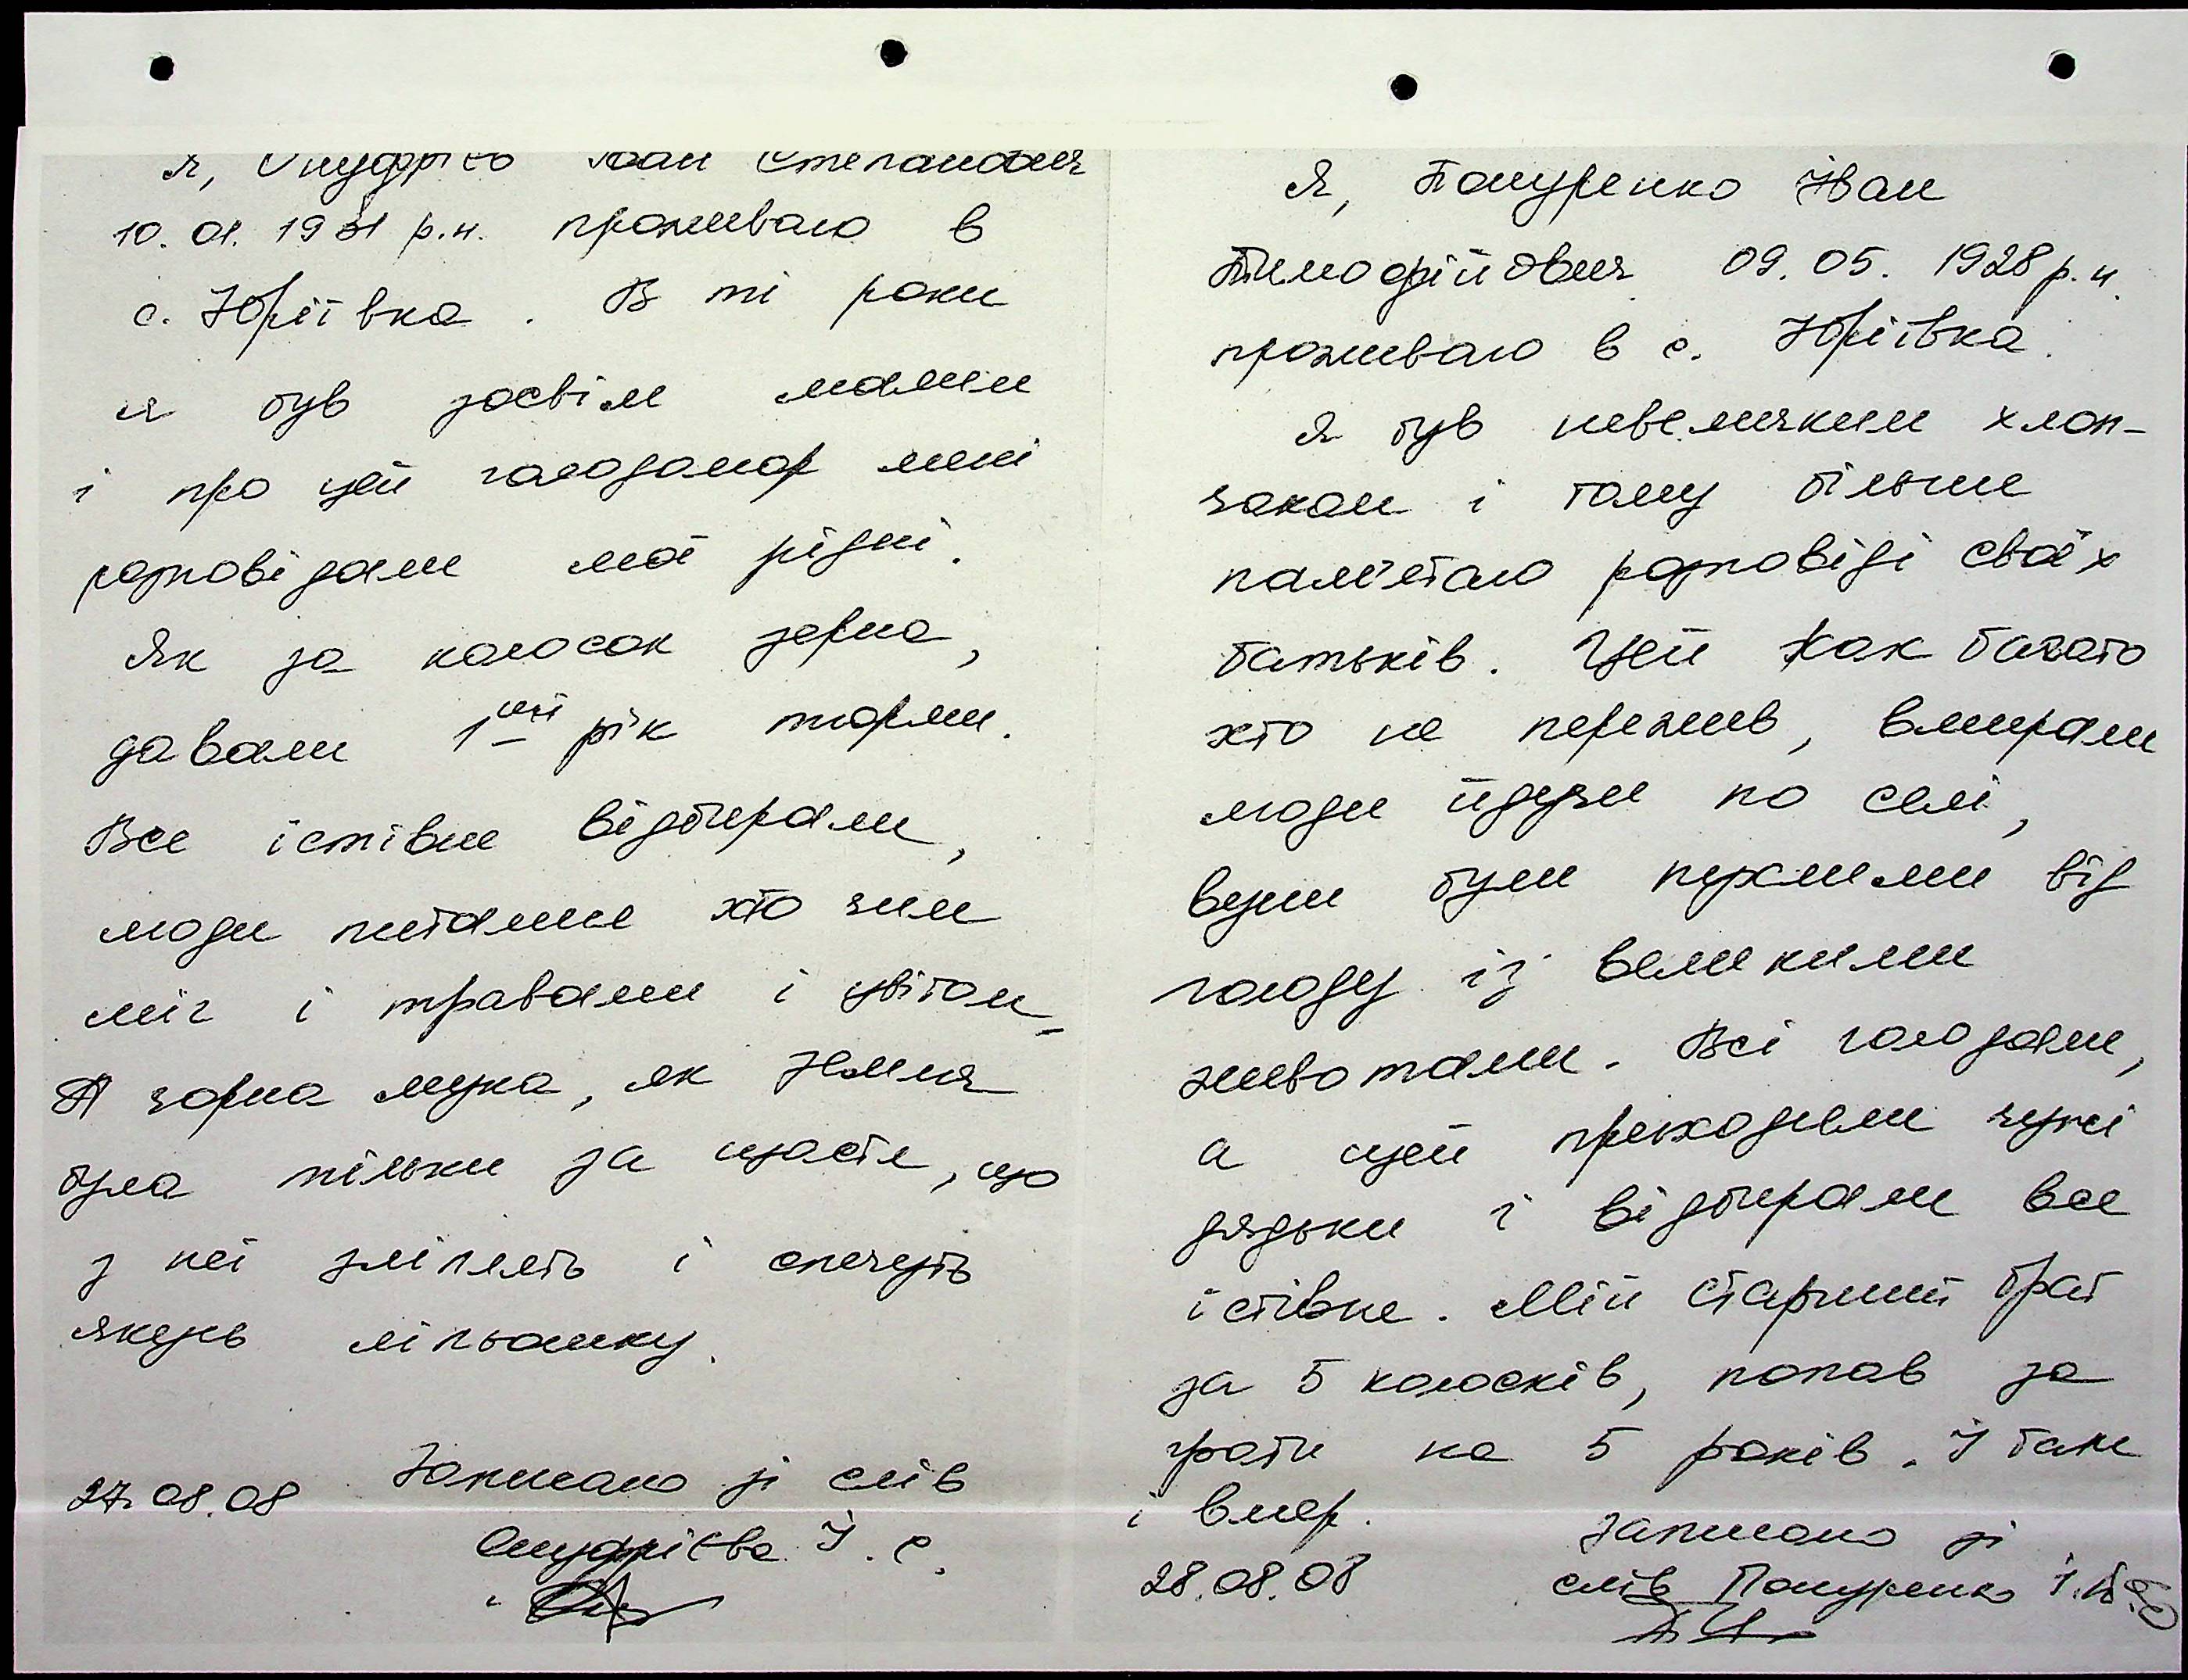 Я, Онуфрієв Іван Степанович
10.01.1931 р.н. проживаю в
с. Юріївка. В ті роки
я був зовсім малим
і про цей голодомор мені
розповідали мої рідні.
Як за колосок зерна,
давали 1ий рік тюрми.
Все їстівне відбирали,
люди питались хто чим
міг і травами і цвітом,
А чорна мука, як Юшка
була тільки за щастя, що
з неї зліплять і спечуть
якусь ліпьошку.
27.08.08 Записано зі слів
Онуфрієва І. С.
Я, Пануренко Іван
Тимофійович 09.05.1928 р.н.
проживаю в с. Юріївка.
Я був невеличким хлоп-
чаком і тому більше
пам'ятаю розповіді своїх
батьків. Цей жах багато
хто не пережив, вмирали
люди йдучи по селі,
вони були пухлими від
голоду із великими
животами. Всі голодали,
а щей приходили чужі
дядьки і відбирали все
їстівне. Мій старший брат
за 5 колосків, попав за
грати на 5 років. І там
і вмер.
28.08.08 Записано зі
слів Пануренко І.Т.